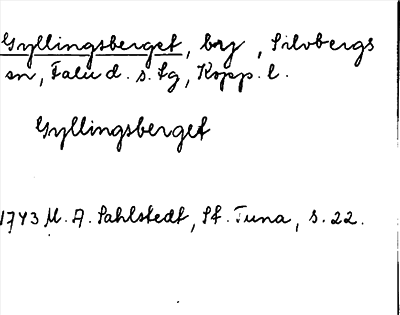 Gyllingsberget, by, Silvbergs
sn, Falu d. s. fg, Kopp. l.
Gyllingsberget
1743 M. A. Sahlstedt, St. Tuna, s. 22.